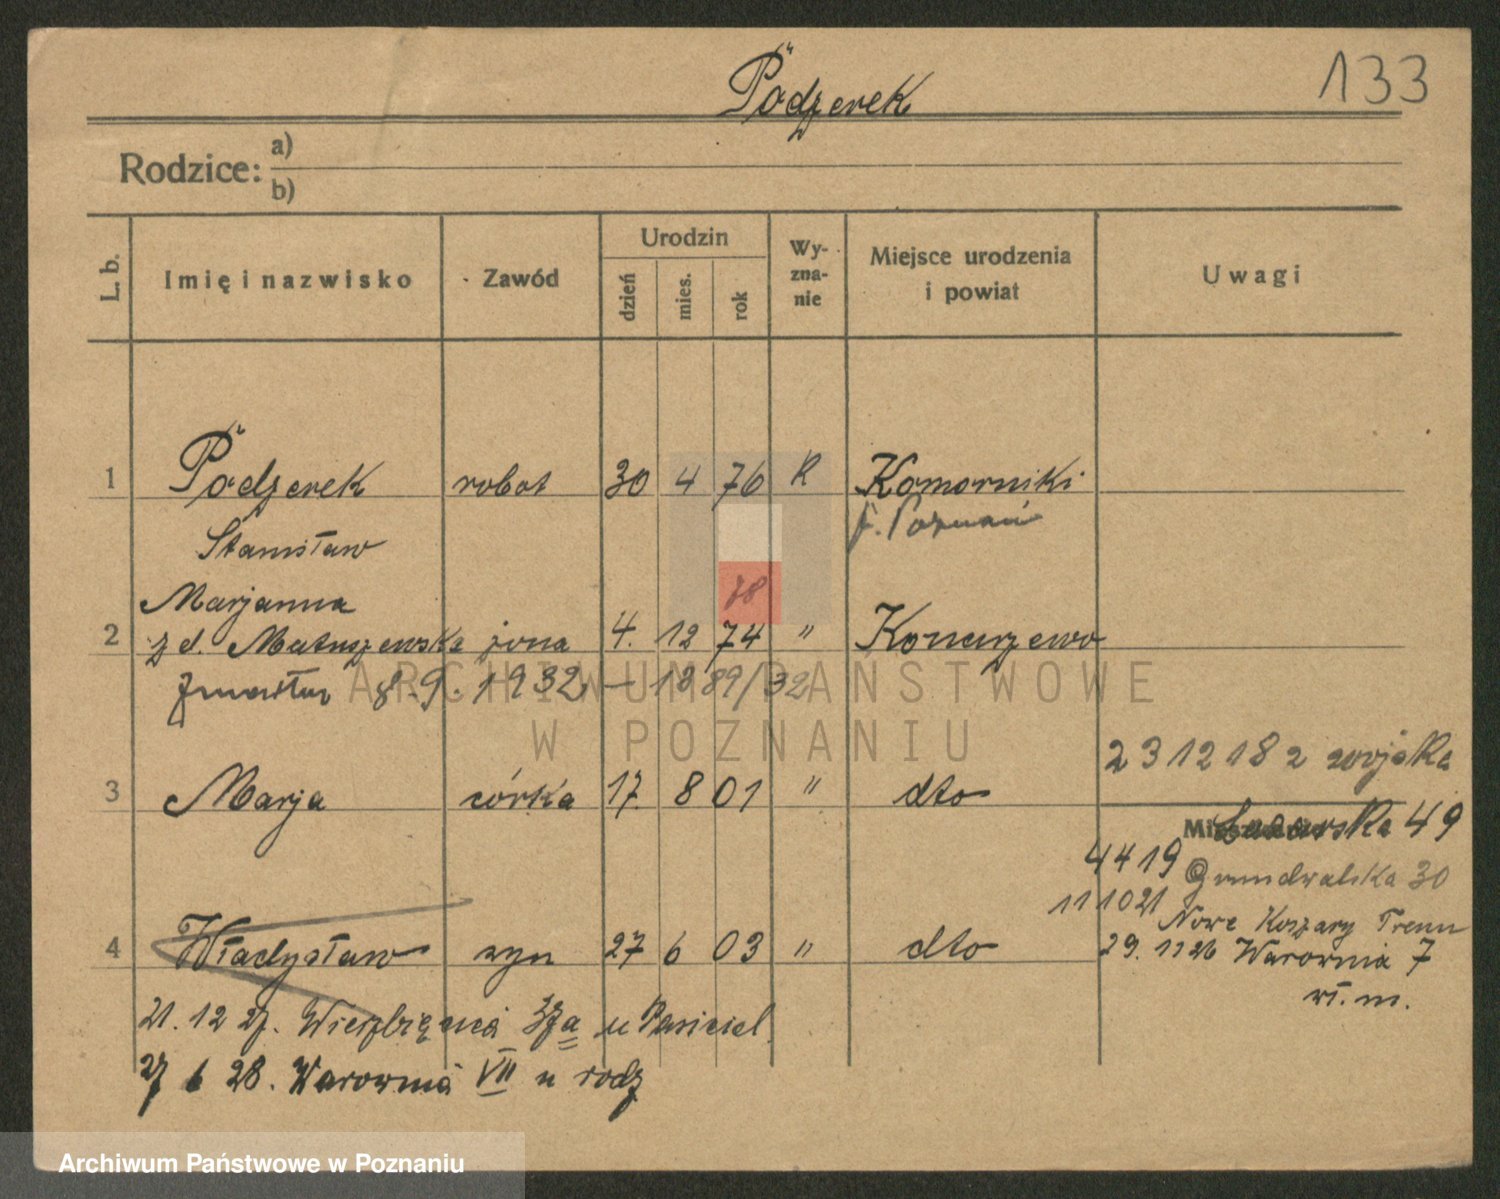 Pädzerek
133
Rodzice: a)
b)
L. b.
Imię i nazwisko
Zawód
Urodzin
dzień
mies.
rok
Wy-
zna-
nie
Miejsce urodzenia
i powiat
Uwagi
1 Pädzerek robot 30 4 76 R Komorniki
Stanisław p. Poznań
78
Marjanna
2 z d. Matuszewska żona 4. 12 74 " Konarzewo
zmarła 8.9.1932 – 1889/32
ARCHIWUM PAŃSTWOWE
W POZNANIU
23 12 18 z wojska
3 Marja córka 17 8 01 " dto
49
4 4 19 Grunwaldzka 30
11 10 21 Nowe Koszary
4 Władysław syn 27 6 03 " dto
29. 11 26 Warownia 7
wł. m.
21. 12 27. 37a u
27 6 28. Warownia VII u rodz
Archiwum Państwowe w Poznaniu